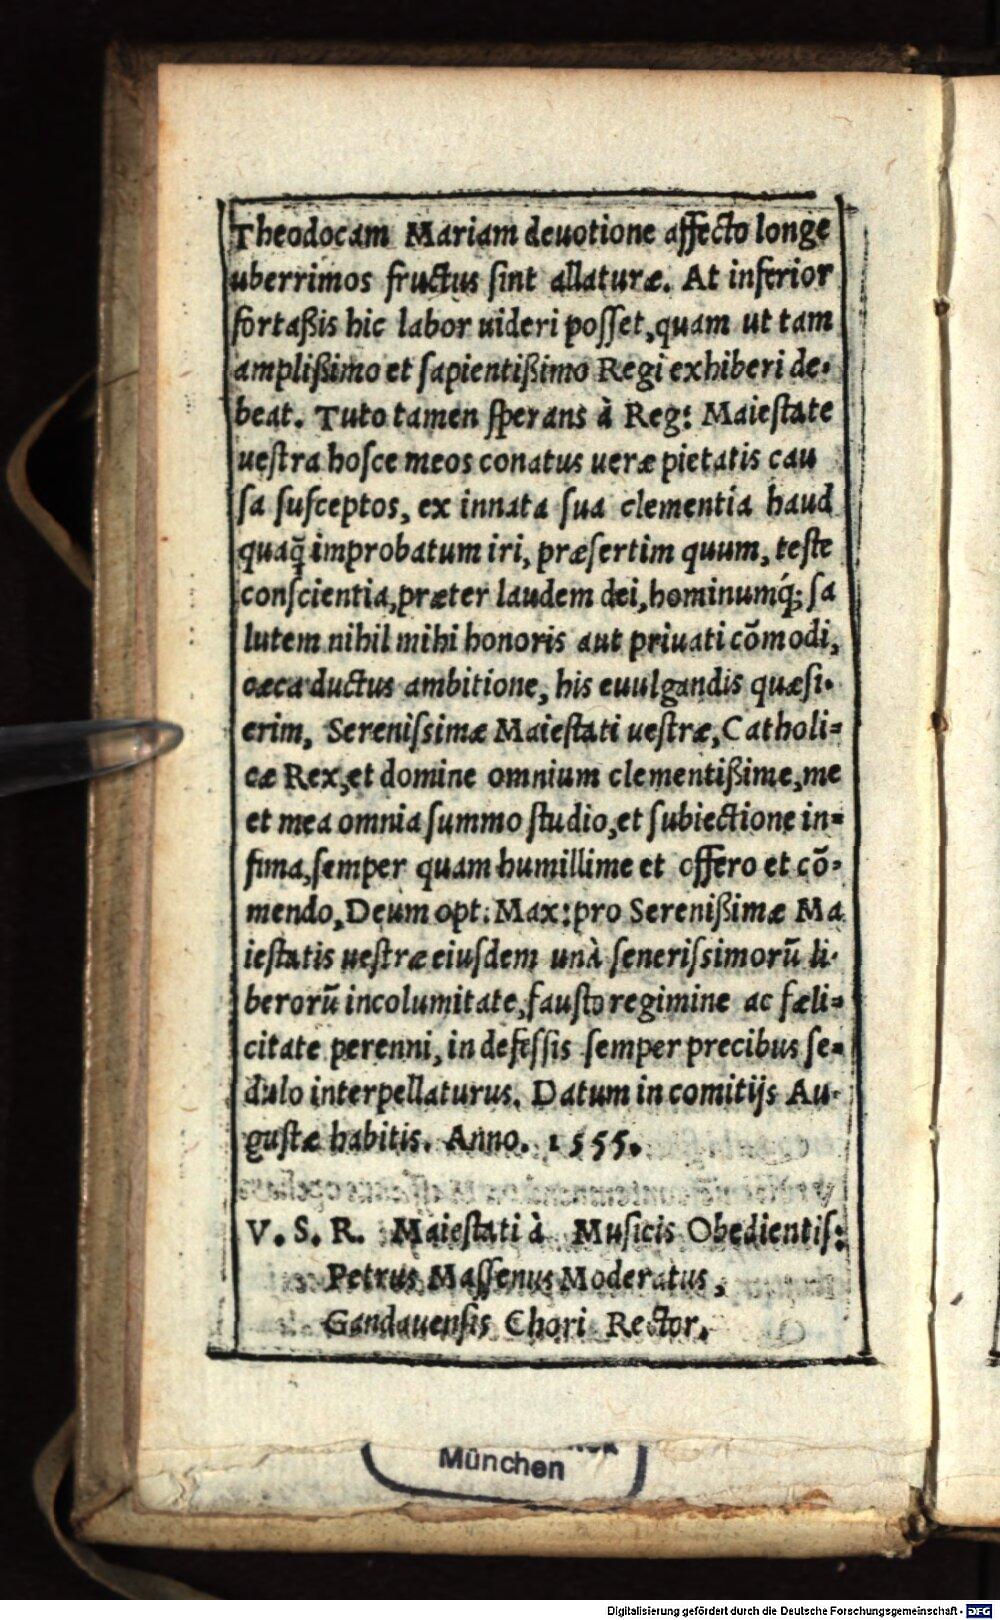 Theodocam Mariam deuotione affecto longe
uberrimos fructus sint allaturæ. At inferior
fortaßis hic labor uideri posset, quam ut tam
amplißimo et sapientißimo Regi exhiberi de-
beat. Tuto tamen sperans à Reg: Maiestate
uestra hosce meos conatus ueræ pietatis cau
sa susceptos, ex innata sua clementia haud
quaq̃ improbatum iri, præsertim quum, teste
conscientia, præter laudem dei, hominumq́; sa
lutem nihil mihi honoris aut priuati cõmodi,
cæca ductus ambitione, his euulgandis quæsi-
erim, Serenissimæ Maiestati uestræ, Catholi-
cæ Rex, et domine omnium clementißime, me
et mea omnia summo studio, et subiectione in-
fima, semper quam humillime et offero et cõ-
mendo, Deum opt: Max: pro Serenißimæ Ma
iestatis uestræ eiusdem unà senerissimorũ li-
berorũ incolumitate, fausto regimine ac fæli-
citate perenni, indefessis semper precibus se-
dulo interpellaturus. Datum in comitijs Au-
gustæ habitis. Anno. 1555.
V. S. R. Maiestati à Musicis Obedientis:
Petrus Massenus Moderatus,
Gandauensis Chori Rector.
München
Digitalisierung gefördert durch die Deutsche Forschungsgemeinschaft - DFG